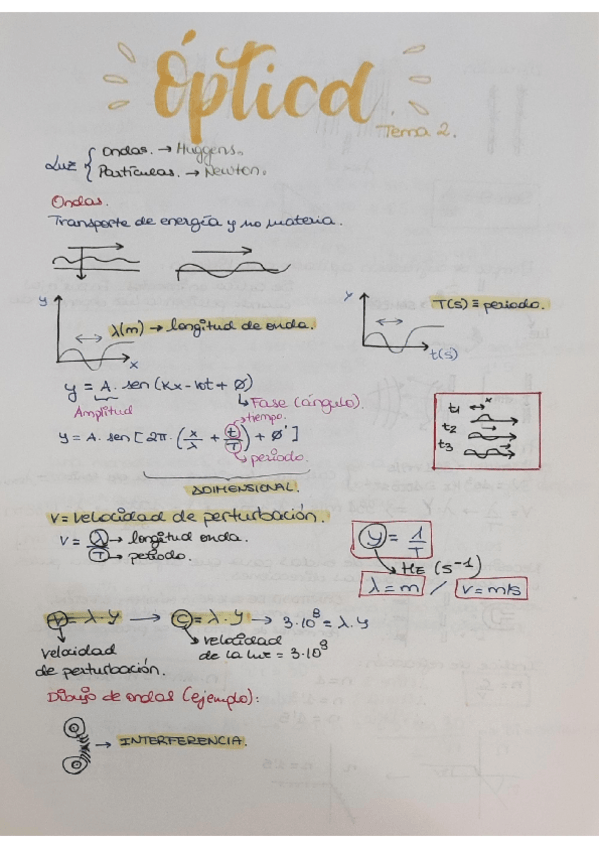 Óptica
Tema 2.
Luz { Ondas. → Huggens.
Partículas. → Newton.
Ondas.
Transporte de energía y no materia.
y
λ(m) → longitud de onda.
x
y
T(s) ≡ periodo.
t(s)
y = A. sen (Kx - wt + Ø)
Amplitud
↳ Fase (ángulo).
y = A. sen [2π. (x/λ + t/T) + Ø']
→ tiempo.
→ periodo.
ADIMENSIONAL.
t1 x
t2
t3
V = velocidad de perturbación.
V = λ → longitud onda.
T → periodo.
γ = 1/T
Hz (s⁻¹)
λ = m / v = m/s
v = λ.γ → c = λ.γ → 3·10⁸ = λ.γ
velocidad de perturbación.
velocidad de la luz = 3·10⁸
Dibujo de ondas (ejemplo):
→ INTERFERENCIA.